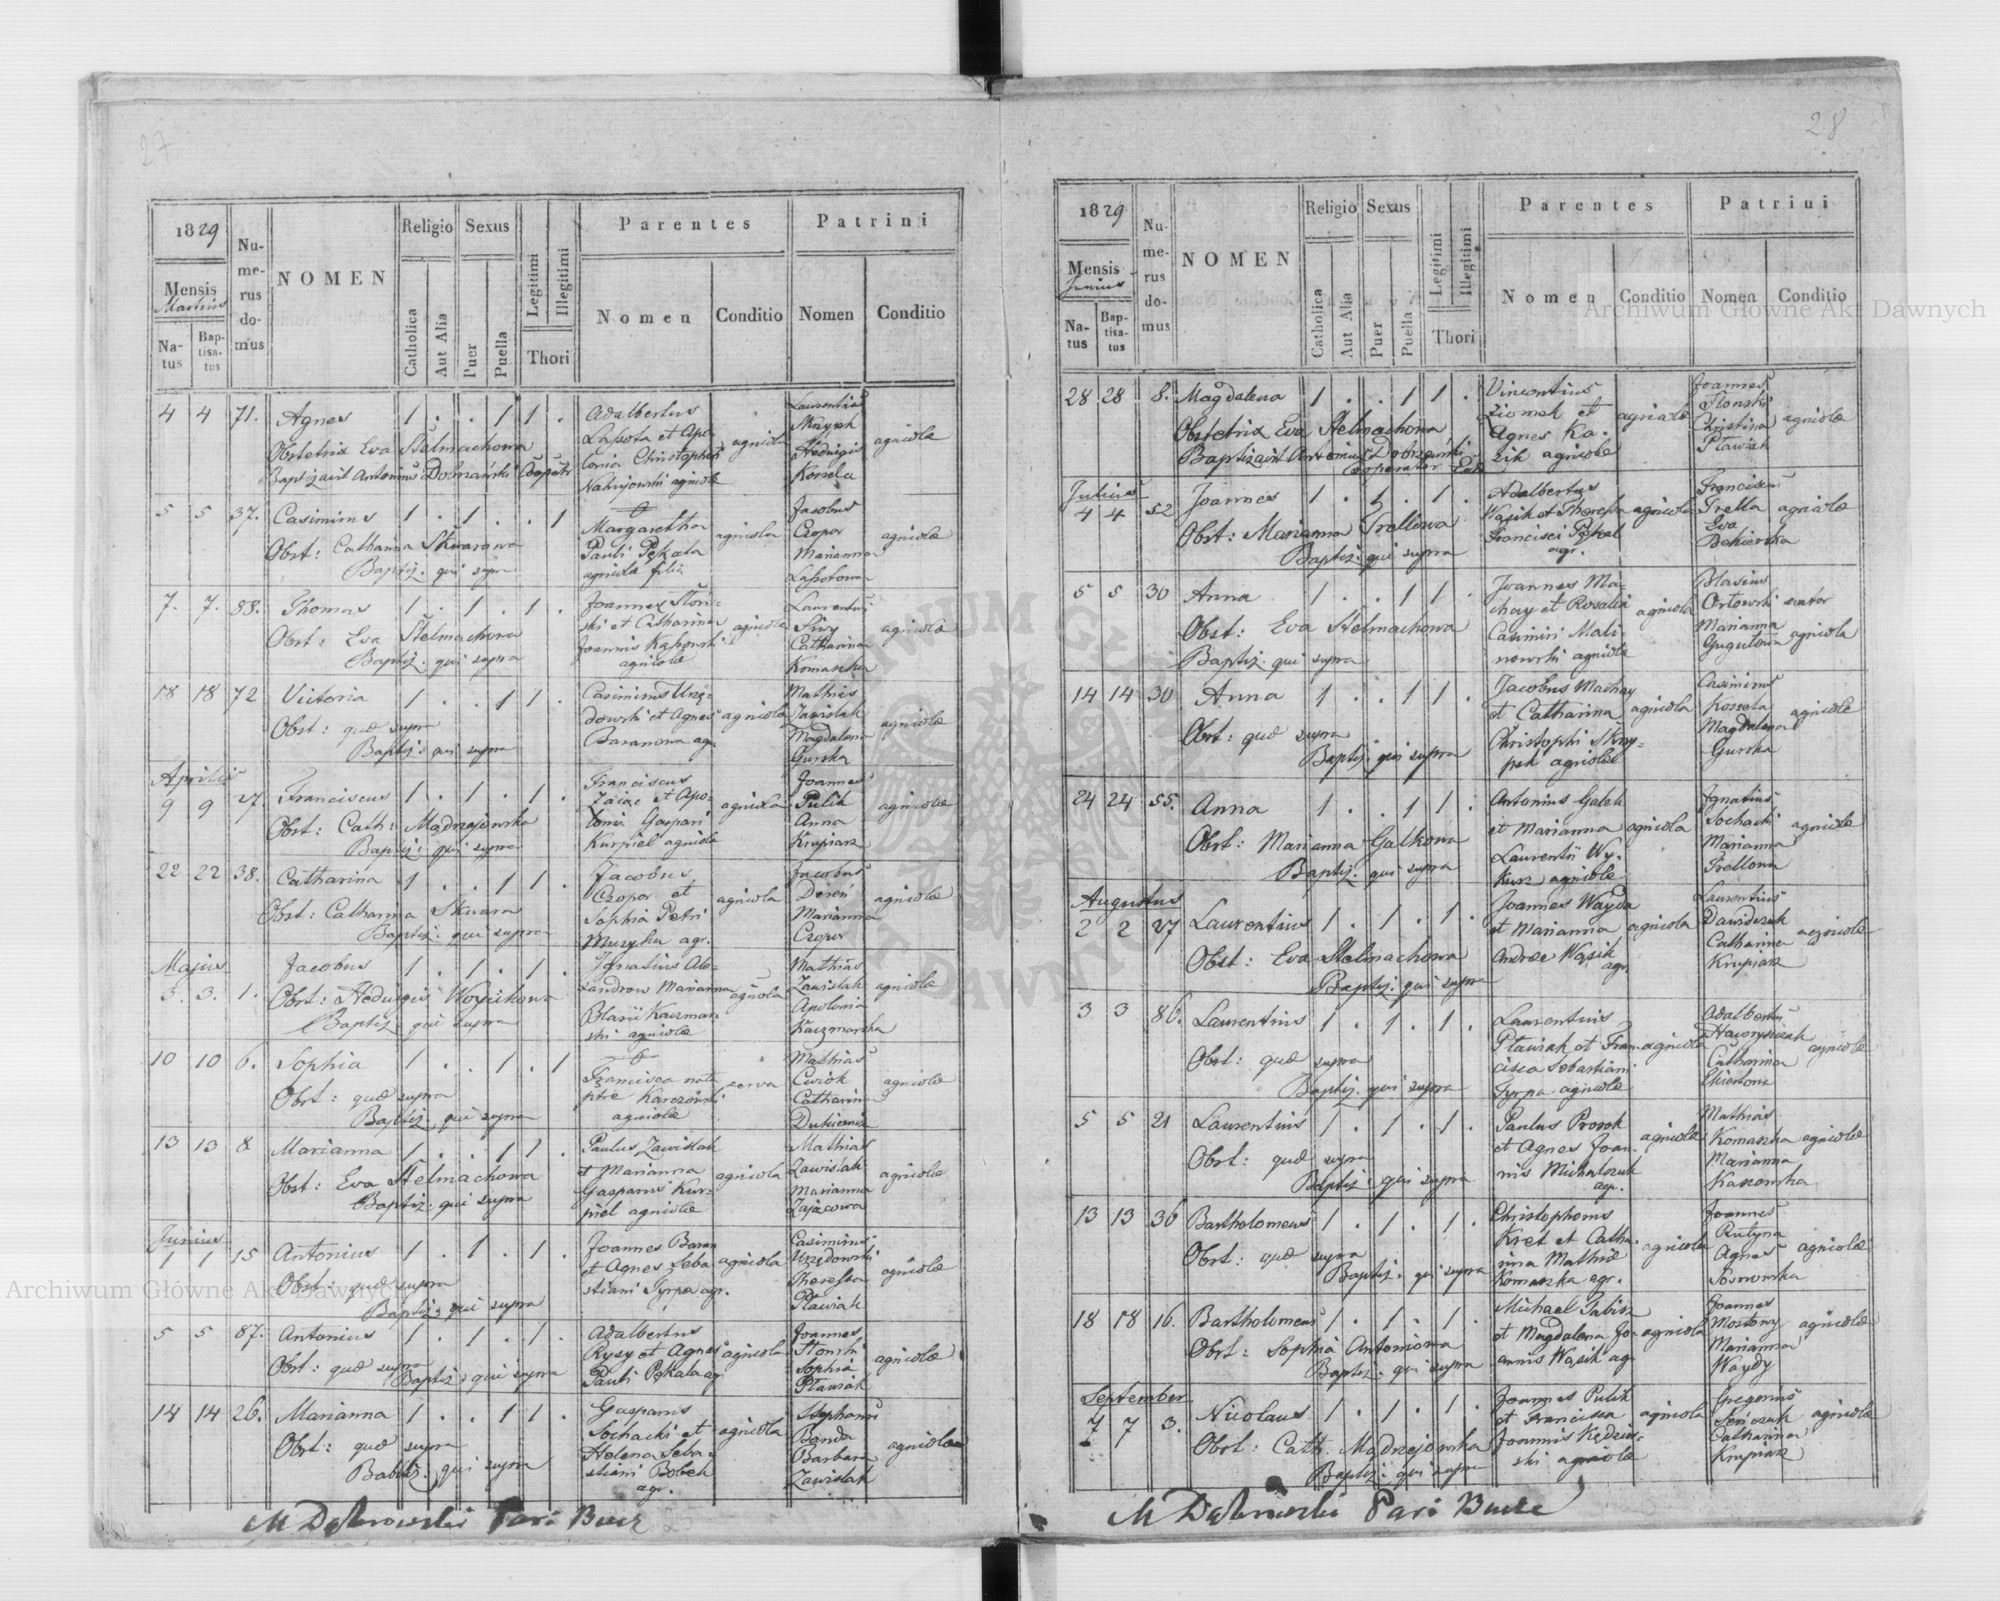 27
1829
Mensis
Martius
Natus
Baptisatus
Numerus domus
NOMEN
Religio
Catholica
Aut Alia
Sexus
Puer
Puella
Legitimi
Illegitimi
Thori
Parentes
Nomen
Conditio
Patrini
Nomen
Conditio
4 4 71. Agnes 1 . . 1 1 .
Obstetrix Eva Stelmachowa
Baptizavit Antonius Dobrzański Cooper
Adalbertus
Lassota et Apo-
lonia Christophori
agricolæ
agricola
Laurentius
Hedvigis
Kossela
agricolæ
5 5 37. Casimirus 1 . 1 . . 1
Obst: Catharina Skurowa
Baptiz: qui supra
Margaretha
Pauli Pękala
agricolæ filia
agricola
Jacobus
Czopor
Marianna
Lassotowa
agricolæ
7. 7. 88. Thomas 1 . 1 . 1 .
Obst: Eva Stelmachowa
Baptiz: qui supra
Joannes Słoń-
ski et Catharina
Joannis
agricolæ
agricola
Laurentius
Siwy
Catharina
Komaszka
agricolæ
18 18 72 Victoria 1 . . 1 1 .
Obst: quæ supra
Baptiz: qui supra
Casimirus Urzę-
dowski et Agnes
Baranowa agr.
agricola
Mathias
Zawislak
Magdalena
Gurska
agricolæ
Aprilis
9 9 27. Franciscus 1 . 1 . 1 .
Obst: Cath: Mądrzejowska
Baptiz: qui supra
Franciscus
Zaiąc et Apo-
lonia Gaspari
Kurpiel agricolæ
agricola
Joannes
Pulik
Anna
Krupiarz
agricolæ
22 22 38. Catharina 1 . . 1 1 .
Obst: Catharina Skurowa
Baptiz: qui supra
Jacobus
Czopor et
Sophia Petri
Muzyka agr.
agricola
Jacobus
Dereń
Marianna
Czopor
agricolæ
Majus
3. 3. 1. Jacobus 1 . 1 . 1 .
Obst: Hedvigis Woycikowa
Baptiz: qui supra
Ignatius Ale-
xandrow Marianna
Blasii Kaczmar-
ski agricolæ
agricola
Mathias
Zawislak
Apolonia
Kaczmarska
agricolæ
10 10 6. Sophia 1 . . 1 . 1
Obst: quæ supra
Baptiz: qui supra
Francisca nata
agricolæ
serva
Mathias
Cwiok
Catharina
agricolæ
13 13 8 Marianna 1 . . 1 1 .
Obst: Eva Stelmachowa
Baptiz: qui supra
Paulus Zawislak
et Marianna
Gasparis Kur-
piel agricolæ
agricola
Mathias
Zawislak
Marianna
Zajacowa
agricolæ
Junius
1 1 15 Antonius 1 . 1 . 1 .
Obst: quæ supra
Baptiz: qui supra
Joannes Baran
et Agnes Seba-
stiani Pyrpa agr.
agricola
Casimirus
Urzędowski
Theressa
Ptawiak
agricolæ
5 5 87. Antonius 1 . 1 . 1 .
Obst: quæ supra
Baptiz: qui supra
Adalbertus
Rysy et Agnes
Pauli Pękala agr
agricola
Joannes
Słonski
Sophia
Ptawiak
agricolæ
14 14 26. Marianna 1 . . 1 1 .
Obst: quæ supra
Babtiz: qui supra
Gasparus
Sochacki et
Helena Seba-
stiani Bobek
agr.
agricola
Stephanus
Banda
Barbara
Zawislak
agricolæ
M Dąbrowski Par:
28
1829
Mensis
Junius
Natus
Baptisatus
Numerus domus
NOMEN
Religio
Catholica
Aut Alia
Sexus
Puer
Puella
Legitimi
Illegitimi
Thori
Parentes
Nomen
Conditio
Patrini
Nomen
Conditio
28 28 8. Magdalena 1 . . 1 1 .
Obstetrix Eva Stelmachowa
Baptizavit Antonius Dobrzański
Cooperator
Vincentius
Ziomek et
Agnes Ka-
zik agricolæ
agricolæ
Joannes
Słonski
Christina
Ptawiak
agricolæ
Julius
4 4 52 Joannes 1 . 1 . 1 .
Obst: Marianna Trellowa
Baptiz: qui supra
Adalbertus
Wąsik et Theressa
Francisci Pękal
agr.
agricola
Franciscus
Trella
Eva
Bekierska
agricolæ
5 5 30 Anna 1 . . 1 1 .
Obst: Eva Stelmachowa
Baptiz: qui supra
Joannes Ma-
chay et Rosalia
Casimiri Mali-
nowski agricolæ
agricola
Blasius
Orłowski
Marianna
agricola
14 14 30 Anna 1 . . 1 1 .
Obst: quæ supra
Baptiz: qui supra
Jacobus Machay
et Catharina
Christophi Skrzy-
pek agricolæ
agricola
Casimirus
Kossela
Magdalena
Gurska
agricolæ
24 24 55. Anna 1 . . 1 1 .
Obst: Marianna Galkowa
Baptiz: qui supra
Antonius Galek
et Marianna
Laurentii Wy-
kurz agricolæ
agricola
Ignatius
Sochacki
Marianna
Trellowa
agricola
Augustus
2 2 27 Laurentius 1 . 1 . 1 .
Obst: Eva Stelmachowa
Baptiz: qui supra
Joannes Wayda
et Marianna
Andreæ Wąsik
agr.
agricola
Laurentius
Dawidczuk
Catharina
Krupiarz
agricolæ
3 3 86. Laurentius 1 . 1 . 1 .
Obst: quæ supra
Baptiz: qui supra
Laurentius
Ptawiak et Fran-
cisca Sebastiani
Pyrpa agricolæ
agricola
Adalbertus
Catharina
agricolæ
5 5 21 Laurentius 1 . 1 . 1 .
Obst: quæ supra
Baptiz: qui supra
Paulus Prorok
et Agnes Joan-
nis Michalczuk
agr.
agricolæ
Mathias
Komaszka
Marianna
Kaszowska
agricolæ
13 13 36 Bartholomeus 1 . 1 . 1 .
Obst: quæ supra
Baptiz: qui supra
Christophorus
Kret et Catha-
rina Mathiæ
Komaszka agr.
agricola
Joannes
Rutyna
Agnes
Sosnowska
agricolæ
18 18 16. Bartholomeus 1 . 1 . 1 .
Obst: Sophia Antoniowa
Baptiz: qui supra
Michael Tabisz
et Magdalena Jo-
annis Wąsik agr
agricola
Joannes
Mostowy
Marianna
Waydy
agricolæ
September
7 7 3. Nicolaus 1 . 1 . 1 .
Obst: Cath. Mądrzejowska
Baptiz: qui supra
Joannes Pulik
et Francisca
Joannis Kędzier-
ski agricolæ
agricola
Gregorius
Catharina
Krupiarz
agricolæ
M Dąbrowski Par:
Archiwum Główne Akt Dawnych
Archiwum Główne Akt Dawnych